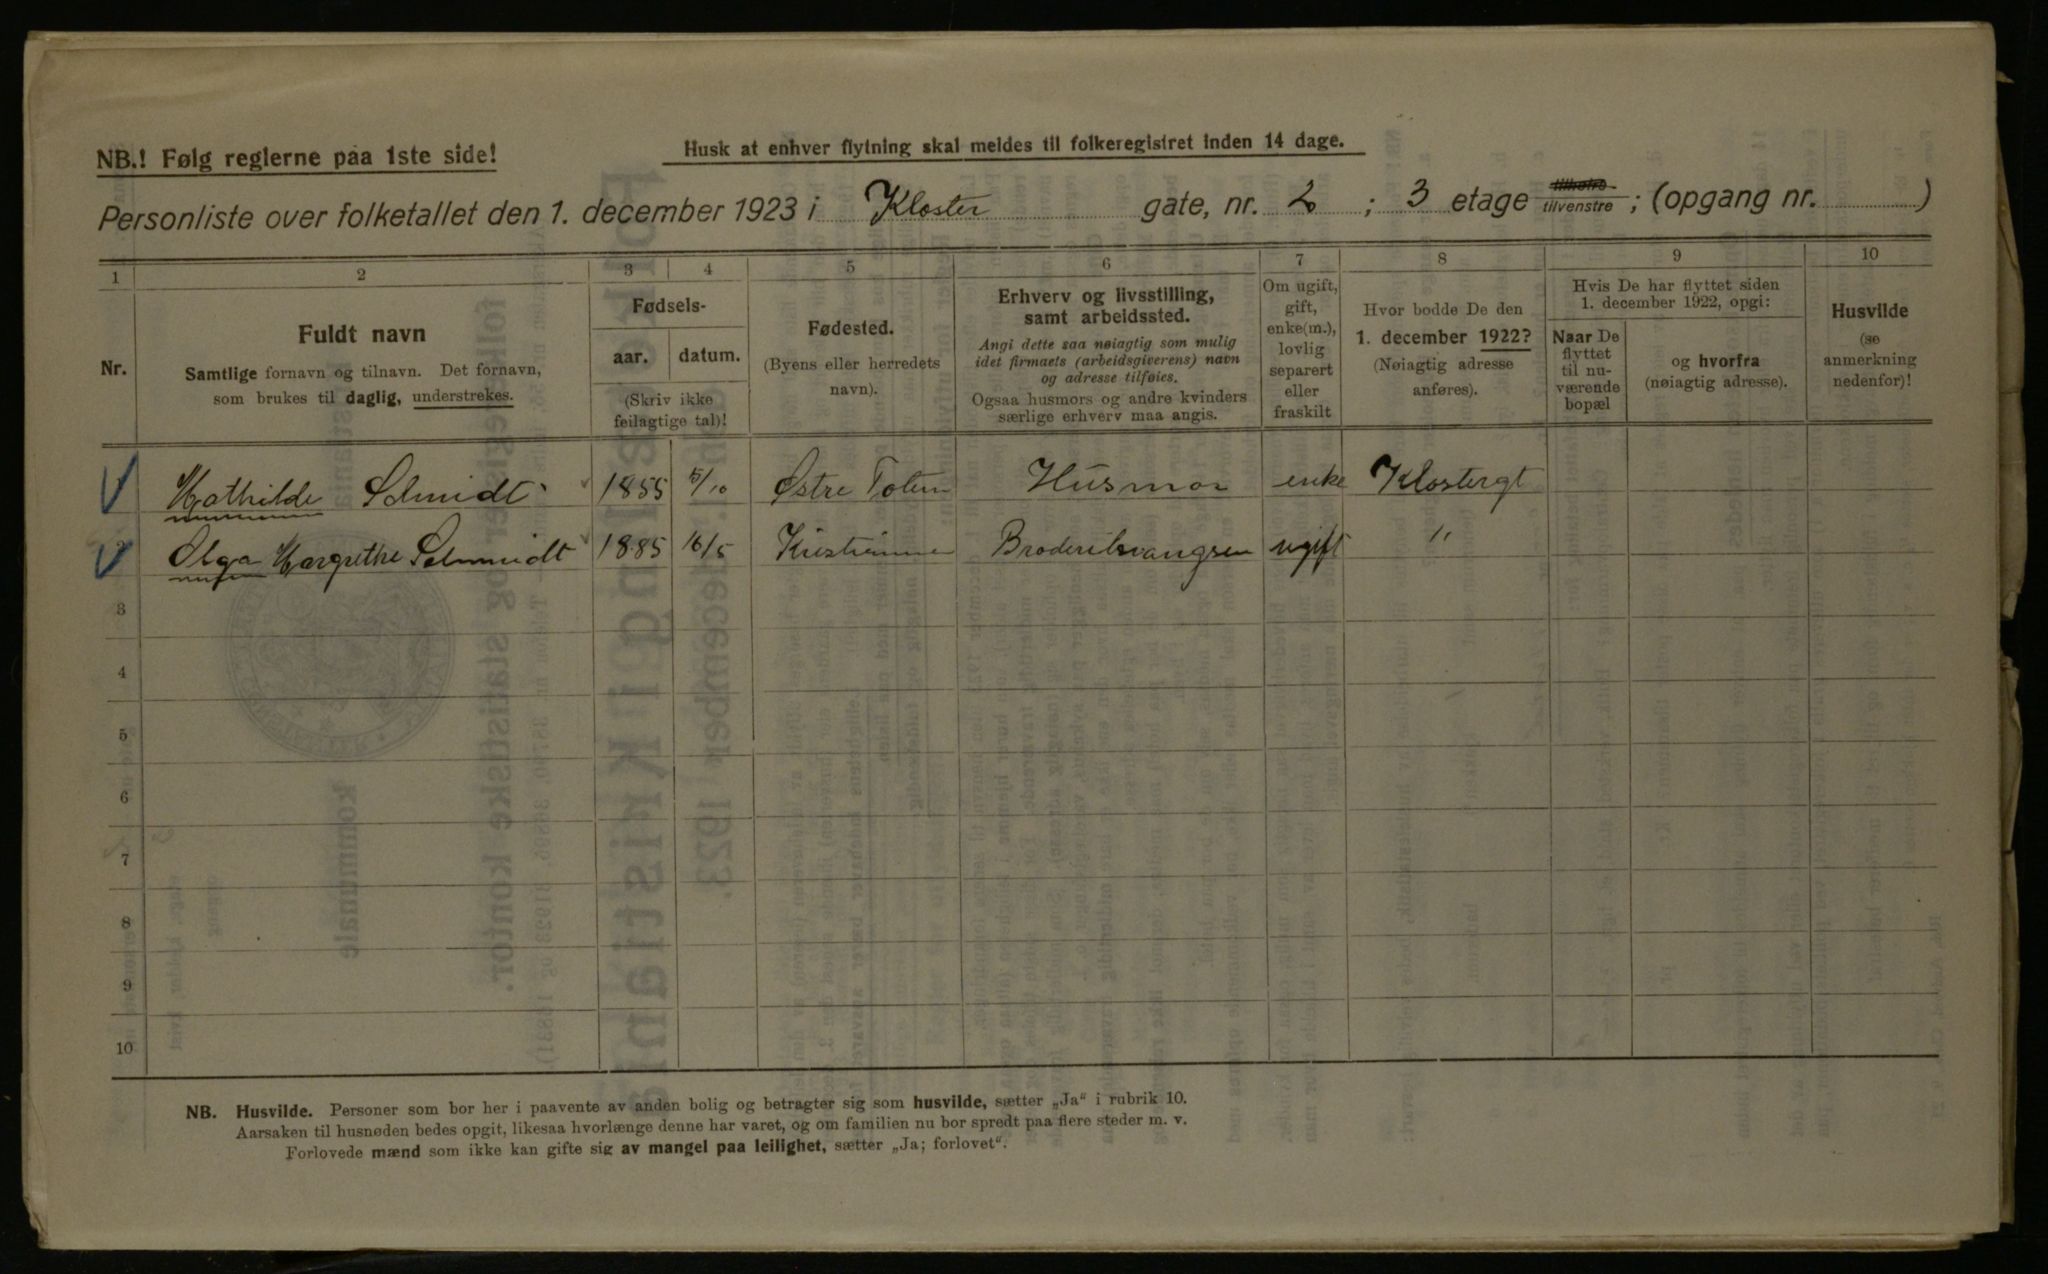 NB.! Følg reglerne paa 1ste side!
Husk at enhver flytning skal meldes til folkeregistret inden 14 dage.
Personliste over folketallet den 1. december 1923 i Kloster gate, nr. 2 ; 3 etage tilhøire tilvenstre ; (opgang nr. )
1 2 3 4 5 6 7 8 9 10
Nr.
Fuldt navn
Samtlige fornavn og tilnavn. Det fornavn,
som brukes til daglig, understrekes.
Fødsels-
aar. datum.
(Skriv ikke
feilagtige tal)!
Fødested.
(Byens eller herredets
navn).
Erhverv og livsstilling,
samt arbeidssted.
Angi dette saa nøiagtig som mulig
idet firmaets (arbeidsgiverens) navn
og adresse tilføies.
Ogsaa husmors og andre kvinders
særlige erhverv maa angis.
Om ugift,
gift,
enke(m.),
lovlig
separert
eller
fraskilt
Hvor bodde De den
1. december 1922?
(Nøiagtig adresse
anføres).
Hvis De har flyttet siden
1. december 1922, opgi:
Naar De
flyttet
til nu-
værende
bopæl
og hvorfra
(nøiagtig adresse).
Husvilde
(se
anmerkning
nedenfor)!
Mathilde Schmidt 1855 5/10 Østre Toten Husmor enke Klostergt
2 Olga Margrethe Schmidt 1885 16/5 Kristiania ugift "
3
4
5
6
7
8
9
10
NB. Husvilde. Personer som bor her i paavente av anden bolig og betragter sig som husvilde, sætter „Ja" i rubrik 10.
Aarsaken til husnøden bedes opgit, likesaa hvorlænge denne har varet, og om familien nu bor spredt paa flere steder m. v.
Forlovede mænd som ikke kan gifte sig av mangel paa leilighet, sætter „Ja; forlovet".